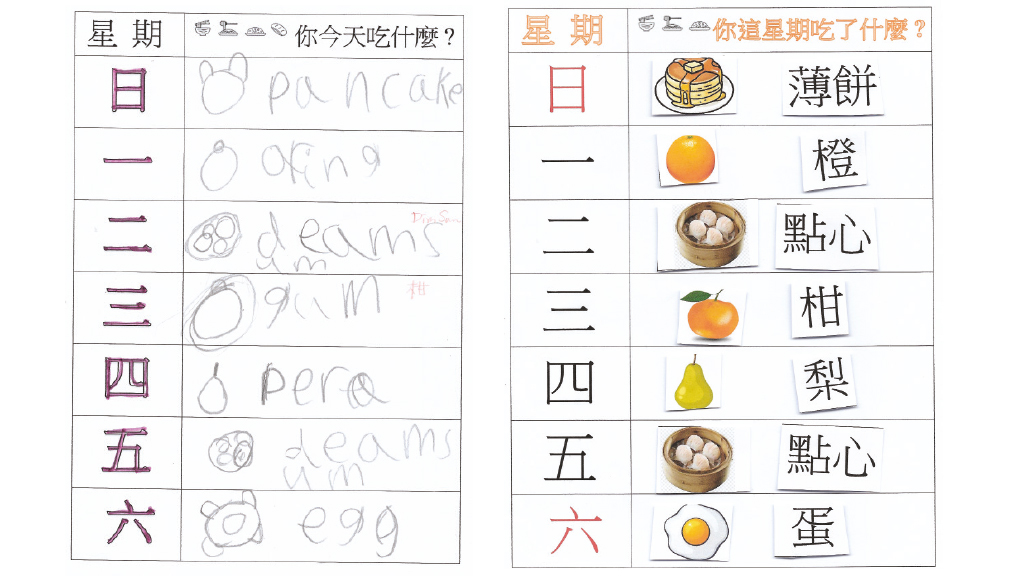 星期 你今天吃什麼？
日 pancake
一 oring
二 deamsum Dim Sum
三 gam 柑
四 pera
五 deamsum
六 egg
星期 你這星期吃了什麼？
日 薄餅
一 橙
二 點心
三 柑
四 梨
五 點心
六 蛋